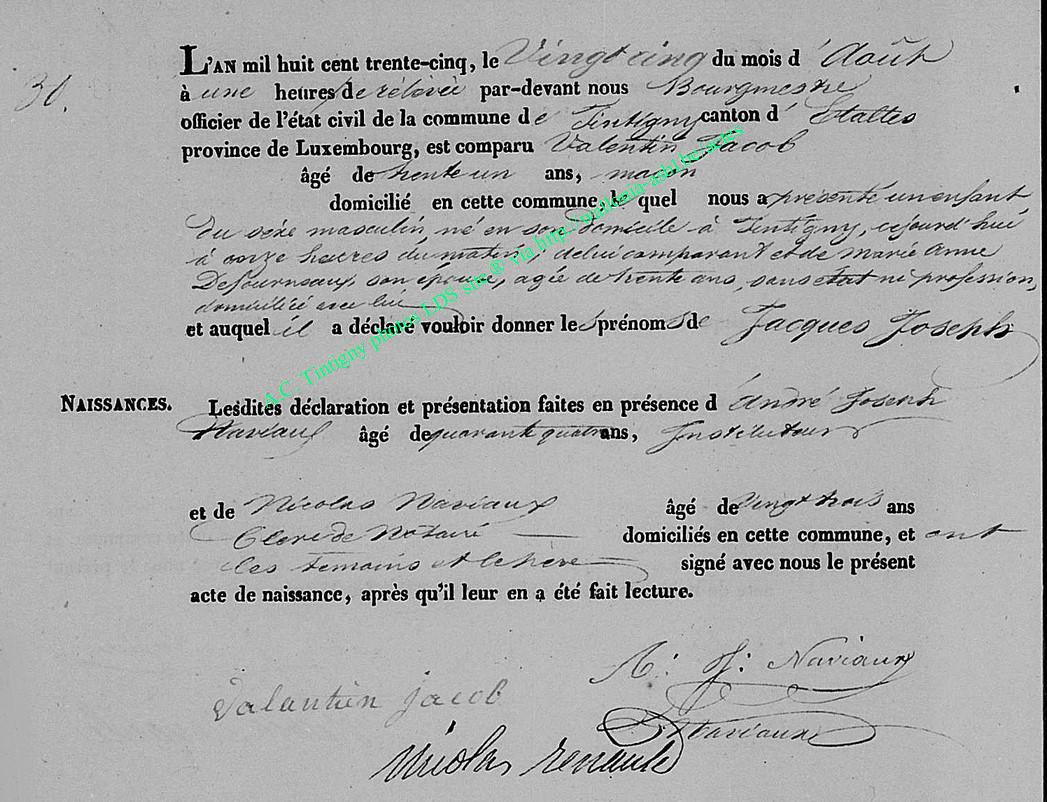 30.
L'AN mil huit cent trente-cinq, le Vingt cinq du mois d'Août
à une heures de rélévée par-devant nous Bourgmestre
officier de l'état civil de la commune de Tintigny canton d'Etalles
province de Luxembourg, est comparu Valentin Jacob
âgé de trente un ans, maçon
domicilié en cette commune, le quel nous a présenté un enfant
du sèxe masculin, né en son domicile à Tintigny, cejourd'hui
à onze heures du matin, de lui comparant et de Marie Anne
Defourneaux, son épouse, agée de trente ans, sans état ni profession,
domiciliée avec lui
et auquel il a déclaré vouloir donner les prénoms de Jacques Joseph
NAISSANCES. Lesdites déclaration et présentation faites en présence d'André Joseph
Naviaux âgé de quarante quatre ans, Instituteur
et de Nicolas Naviaux âgé de Vingt trois ans
Clerc de Notaire domiciliés en cette commune, et ont
les temoins et le père signé avec nous le présent
acte de naissance, après qu'il leur en a été fait lecture.
A: J: Naviaux
Valantien Jacob
Naviaux
Nicolas renauld
A.C. Tintigny photos LDS site © via http://wallonia-asbl.be